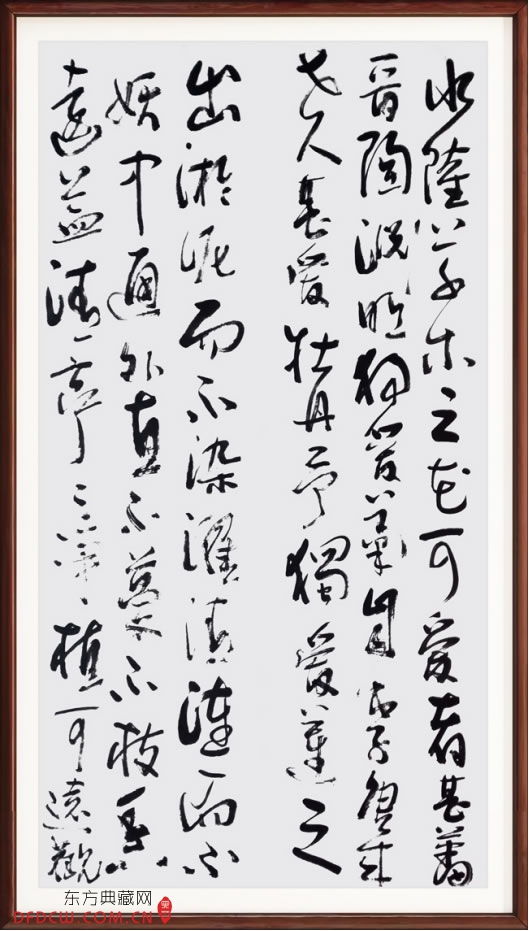 水陸草木之花可愛者甚蕃
晉陶淵明獨愛菊自李唐来
世人甚愛牡丹予獨愛蓮之
出淤泥而不染濯清漣而不
妖中通外直不蔓不枝香
遠益清亭亭淨植可遠觀
东方典藏网
DFDCW.COM.CN